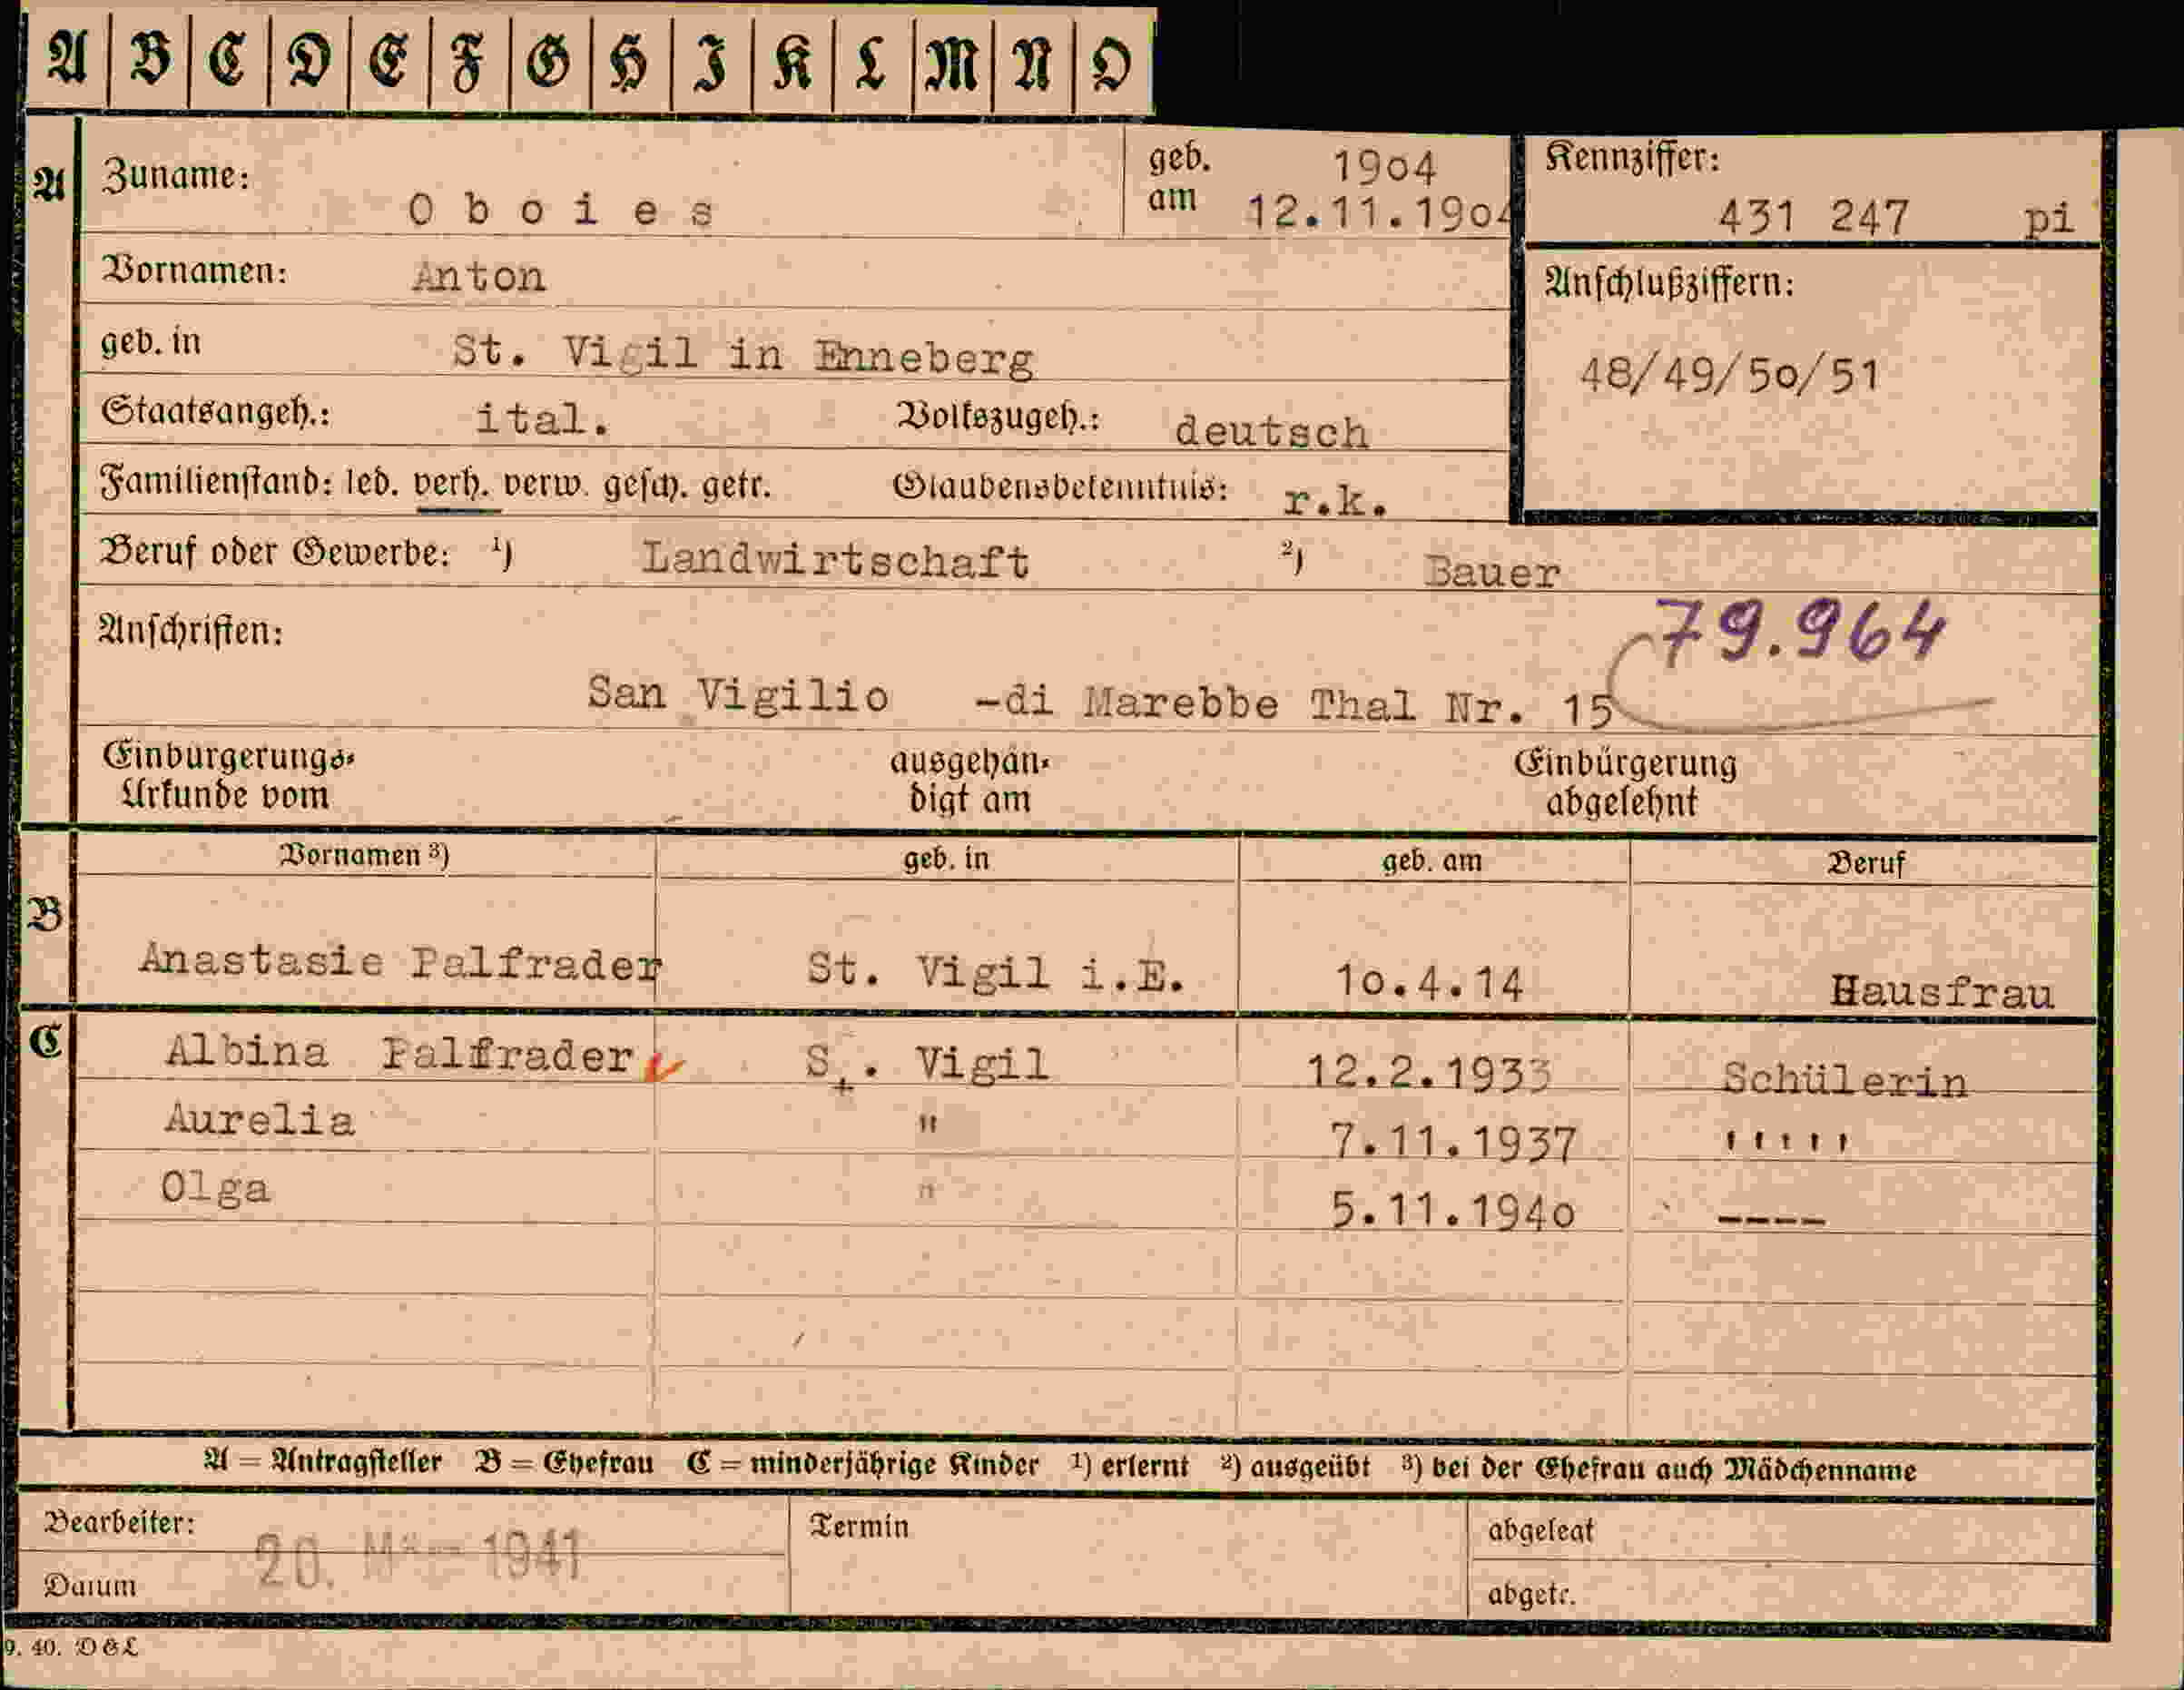 A B C D E F G H I K L M N O
A Zuname: Oboies geb. am 1904 12.11.1904 Kennziffer: 431 247 pi
Vornamen: Anton Anschlußziffern:
geb. in St. Vigil in Enneberg 48/49/50/51
Staatsangeh.: ital. Volkszugeh.: deutsch
Familienstand: led. verh. verw. gesch. getr. Glaubensbekenntnis: r.k.
Beruf oder Gewerbe: ¹) Landwirtschaft ²) Bauer
Anschriften: 79.964
San Vigilio -di Marebbe Thal Nr. 15
Einbürgerungs- ausgehän- Einbürgerung
Urkunde vom digt am abgelehnt
Vornamen ³) geb. in geb. am Beruf
B
Anastasie Palfrader St. Vigil i.E. 10.4.14 Hausfrau
C Albina Palfrader St. Vigil 12.2.1933 Schülerin
Aurelia " 7.11.1937 '''''
Olga " 5.11.1940 ----
A = Antragsteller B = Ehefrau C = minderjährige Kinder ¹) erlernt ²) ausgeübt ³) bei der Ehefrau auch Mädchenname
Bearbeiter: Termin abgelegt
Datum 20. 1941 abgetr.
9. 40. D & L